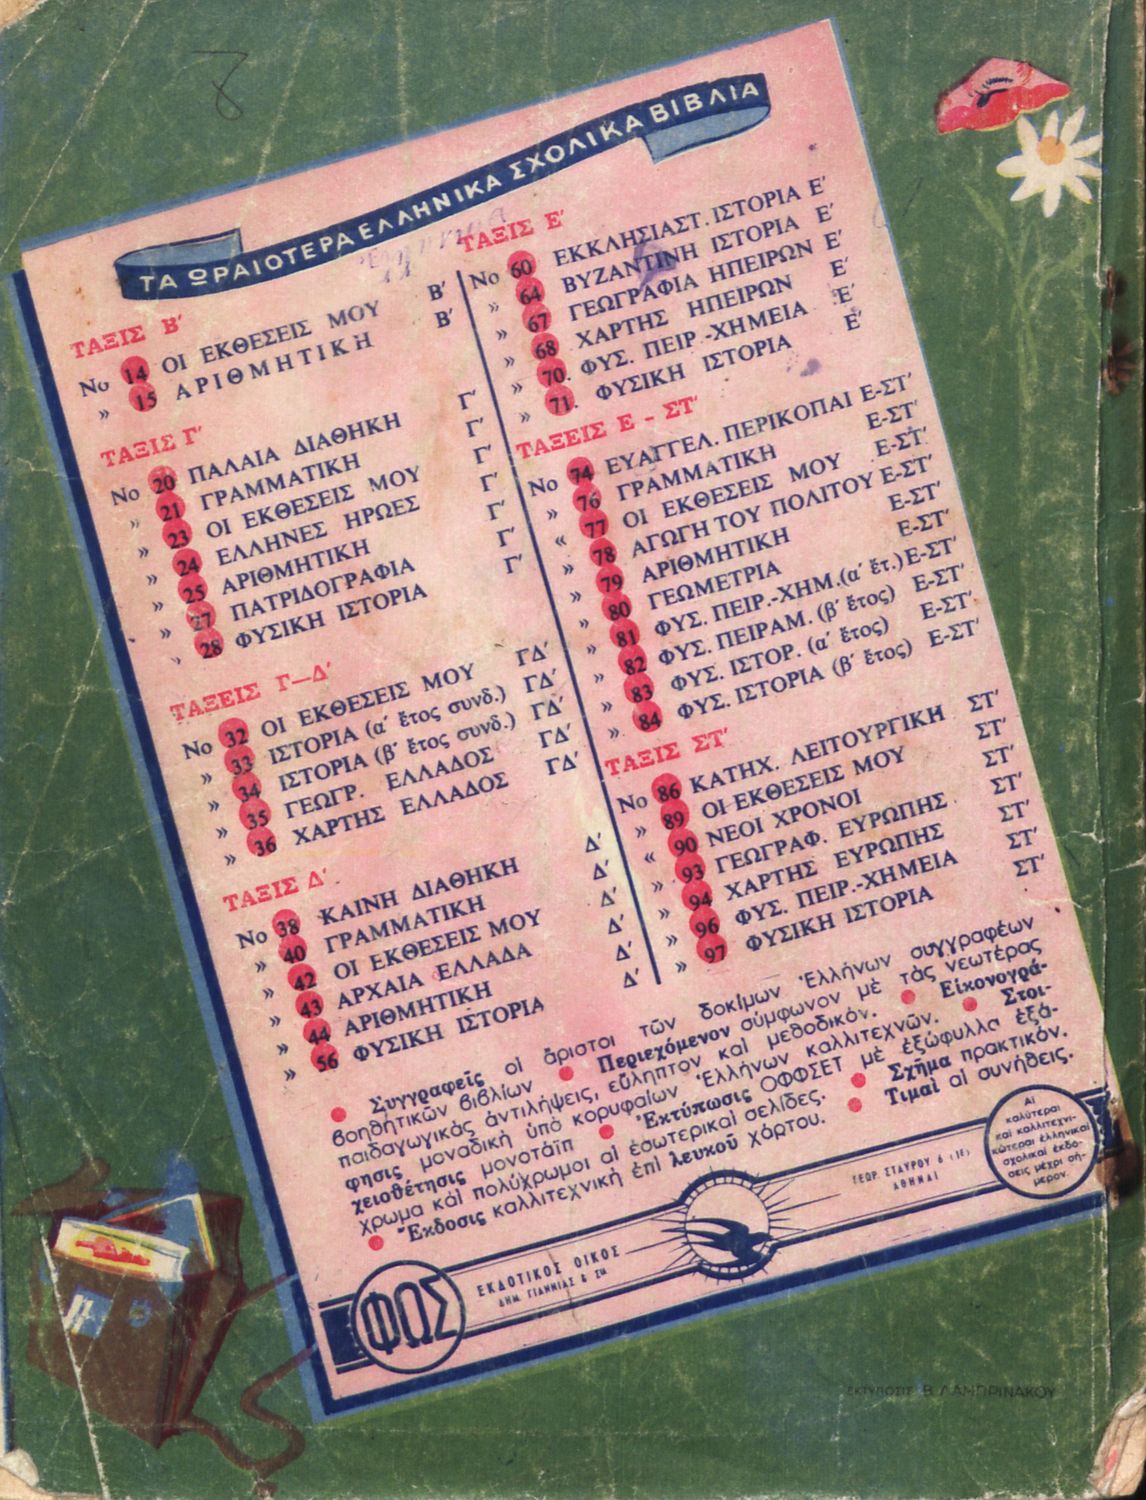 8
ΤΑ ΩΡΑΙΟΤΕΡΑ ΕΛΛΗΝΙΚΑ ΣΧΟΛΙΚΑ ΒΙΒΛΙΑ
ΤΑΞΙΣ Β'
Νο 14 ΟΙ ΕΚΘΕΣΕΙΣ ΜΟΥ Β'
» 15 ΑΡΙΘΜΗΤΙΚΗ Β'
ΤΑΞΙΣ Γ'
Νο 20 ΠΑΛΑΙΑ ΔΙΑΘΗΚΗ Γ'
» 21 ΓΡΑΜΜΑΤΙΚΗ Γ'
» 23 ΟΙ ΕΚΘΕΣΕΙΣ ΜΟΥ Γ'
» 24 ΕΛΛΗΝΕΣ ΗΡΩΕΣ Γ'
» 25 ΑΡΙΘΜΗΤΙΚΗ Γ'
» 27 ΠΑΤΡΙΔΟΓΡΑΦΙΑ Γ'
» 28 ΦΥΣΙΚΗ ΙΣΤΟΡΙΑ Γ'
ΤΑΞΕΙΣ Γ—Δ'
Νο 32 ΟΙ ΕΚΘΕΣΕΙΣ ΜΟΥ ΓΔ'
» 33 ΙΣΤΟΡΙΑ (α' ἔτος συνδ.) ΓΔ'
» 34 ΙΣΤΟΡΙΑ (β' ἔτος συνδ.) ΓΔ'
» 35 ΓΕΩΓΡ. ΕΛΛΑΔΟΣ ΓΔ'
» 36 ΧΑΡΤΗΣ ΕΛΛΑΔΟΣ ΓΔ'
ΤΑΞΙΣ Δ'
Νο 38 ΚΑΙΝΗ ΔΙΑΘΗΚΗ Δ'
» 40 ΓΡΑΜΜΑΤΙΚΗ Δ'
» 42 ΟΙ ΕΚΘΕΣΕΙΣ ΜΟΥ Δ'
» 43 ΑΡΧΑΙΑ ΕΛΛΑΔΑ Δ'
» 44 ΑΡΙΘΜΗΤΙΚΗ Δ'
» 56 ΦΥΣΙΚΗ ΙΣΤΟΡΙΑ Δ'
ΤΑΞΙΣ Ε'
Νο 60 ΕΚΚΛΗΣΙΑΣΤ. ΙΣΤΟΡΙΑ Ε'
» 64 ΒΥΖΑΝΤΙΝΗ ΙΣΤΟΡΙΑ Ε'
» 67 ΓΕΩΓΡΑΦΙΑ ΗΠΕΙΡΩΝ Ε'
» 68 ΧΑΡΤΗΣ ΗΠΕΙΡΩΝ Ε'
» 70. ΦΥΣ. ΠΕΙΡ.-ΧΗΜΕΙΑ Ε'
» 71. ΦΥΣΙΚΗ ΙΣΤΟΡΙΑ Ε'
ΤΑΞΕΙΣ Ε - ΣΤ'
Νο 74 ΕΥΑΓΓΕΛ. ΠΕΡΙΚΟΠΑΙ Ε-ΣΤ'
» 76 ΓΡΑΜΜΑΤΙΚΗ Ε-ΣΤ'
« 77 ΟΙ ΕΚΘΕΣΕΙΣ ΜΟΥ Ε-ΣΤ'
» 78 ΑΓΩΓΗ ΤΟΥ ΠΟΛΙΤΟΥ Ε-ΣΤ'
» 79 ΑΡΙΘΜΗΤΙΚΗ Ε-ΣΤ'
» 80 ΓΕΩΜΕΤΡΙΑ Ε-ΣΤ'
» 81 ΦΥΣ. ΠΕΙΡ.-ΧΗΜ.(α' ἔτ.) Ε-ΣΤ'
» 82 ΦΥΣ. ΠΕΙΡΑΜ. (β' ἔτος) Ε-ΣΤ'
» 83 ΦΥΣ. ΙΣΤΟΡ. (α' ἔτος) Ε-ΣΤ'
» 84 ΦΥΣ. ΙΣΤΟΡΙΑ (β' ἔτος) Ε-ΣΤ'
ΤΑΞΙΣ ΣΤ'
Νο 86 ΚΑΤΗΧ. ΛΕΙΤΟΥΡΓΙΚΗ ΣΤ'
» 89 ΟΙ ΕΚΘΕΣΕΙΣ ΜΟΥ ΣΤ'
« 90 ΝΕΟΙ ΧΡΟΝΟΙ ΣΤ'
» 93 ΓΕΩΓΡΑΦ. ΕΥΡΩΠΗΣ ΣΤ'
» 94 ΧΑΡΤΗΣ ΕΥΡΩΠΗΣ ΣΤ'
» 96 ΦΥΣ. ΠΕΙΡ.-ΧΗΜΕΙΑ ΣΤ'
» 97 ΦΥΣΙΚΗ ΙΣΤΟΡΙΑ ΣΤ'
● Συγγραφεῖς οἱ ἄριστοι τῶν δοκίμων Ἑλλήνων συγγραφέων
βοηθητικῶν βιβλίων ● Περιεχόμενον σύμφωνον μὲ τὰς νεωτέρας
παιδαγωγικὰς ἀντιλήψεις, εὔληπτον καὶ μεθοδικόν. ● Εἰκονογρά-
φησις μοναδικὴ ὑπὸ κορυφαίων Ἑλλήνων καλλιτεχνῶν. ● Στοι-
χειοθέτησις μονοτάϊπ ● Ἐκτύπωσις ΟΦΦΣΕΤ μὲ ἐξώφυλλα ἑξά-
χρωμα καὶ πολύχρωμοι αἱ ἐσωτερικαὶ σελίδες. ● Σχῆμα πρακτικόν.
● Ἔκδοσις καλλιτεχνικὴ ἐπὶ λευκοῦ χάρτου. ● Τιμαὶ αἱ συνήθεις.
ΦΩΣ
ΕΚΔΟΤΙΚΟΣ ΟΙΚΟΣ
ΔΗΜ. ΓΙΑΝΝΙΑΣ & ΣΙΑ
ΓΕΩΡ. ΣΤΑΥΡΟΥ 6 (ΙΕ)
ΑΘΗΝΑΙ
Αἱ
καλύτεραι
καὶ καλλιτεχνι-
κώτεραι ἑλληνικαὶ
σχολικαὶ ἐκδό-
σεις μέχρι σή-
μερον.
ΕΚΤΥΠΩΣΙΣ Β. ΛΑΜΠΡΙΝΑΚΟΥ